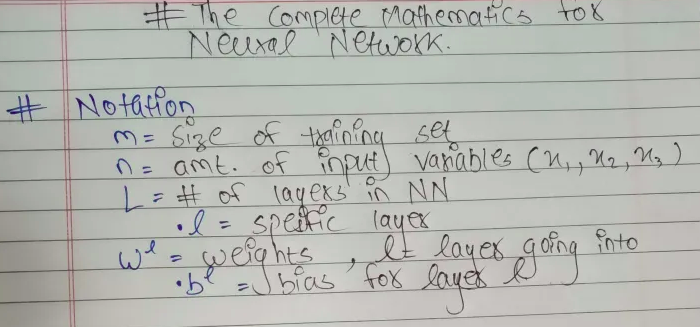 # The Complete Mathematics for
Neural Network.
# Notation
m = Size of training set
n = amt. of input variables (x₁, x₂, x₃)
L = # of layers in NN
• l = speific layer
wˡ = weights, l = layer going into
• bˡ = bias for layer l